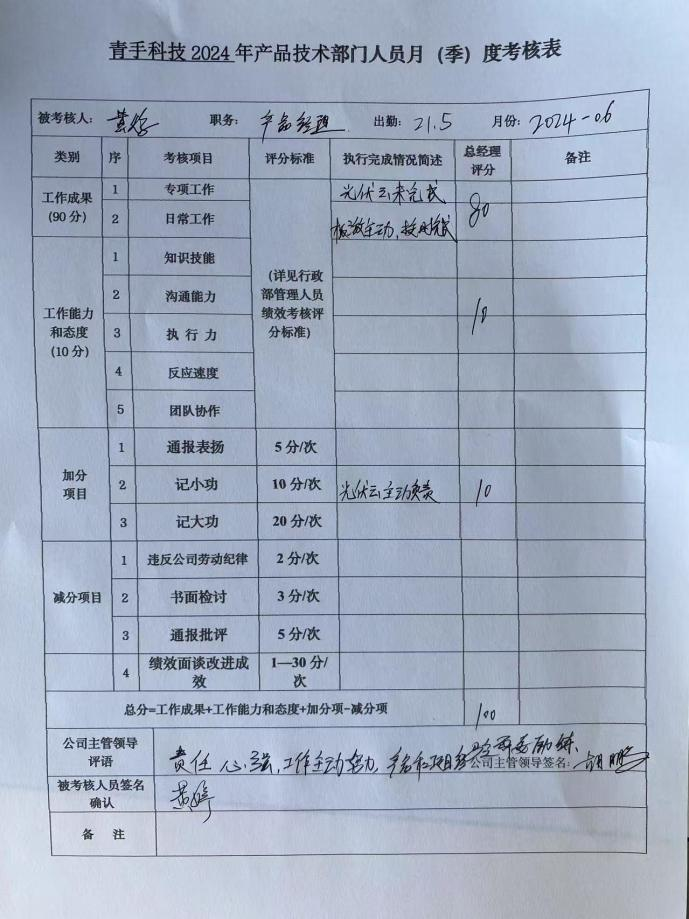 青手科技 2024 年产品技术部门人员月（季）度考核表
被考核人： 黄婷 职务： 产品经理 出勤： 21.5 月份： 2024-06
类别 序 考核项目 评分标准 执行完成情况简述 总经理评分 备注
工作成果（90分）
1 专项工作 光伏云未完成
2 日常工作 积极主动，按时完成
80
（详见行政部管理人员绩效考核评分标准）
工作能力和态度（10分）
1 知识技能
2 沟通能力
3 执行力
4 反应速度
5 团队协作
10
加分项目
1 通报表扬 5分/次
2 记小功 10分/次 光伏云主动负责 10
3 记大功 20分/次
减分项目
1 违反公司劳动纪律 2分/次
2 书面检讨 3分/次
3 通报批评 5分/次
4 绩效面谈改进成效 1—30分/次
总分=工作成果+工作能力和态度+加分项-减分项 100
公司主管领导评语 责任心强，工作主动努力，产品和项目经验 公司主管领导签名：
被考核人员签名确认 黄婷
备 注